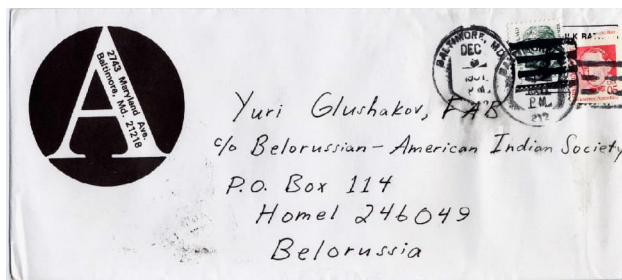 A
2743 Maryland Ave.
Baltimore, Md. 21218
BALTIMORE, MD
DEC
P.M.
P.M.
212
05
Yuri Glushakov, FAB
c/o Belorussian-American Indian Society
P.O. Box 114
Homel 246049
Belorussia